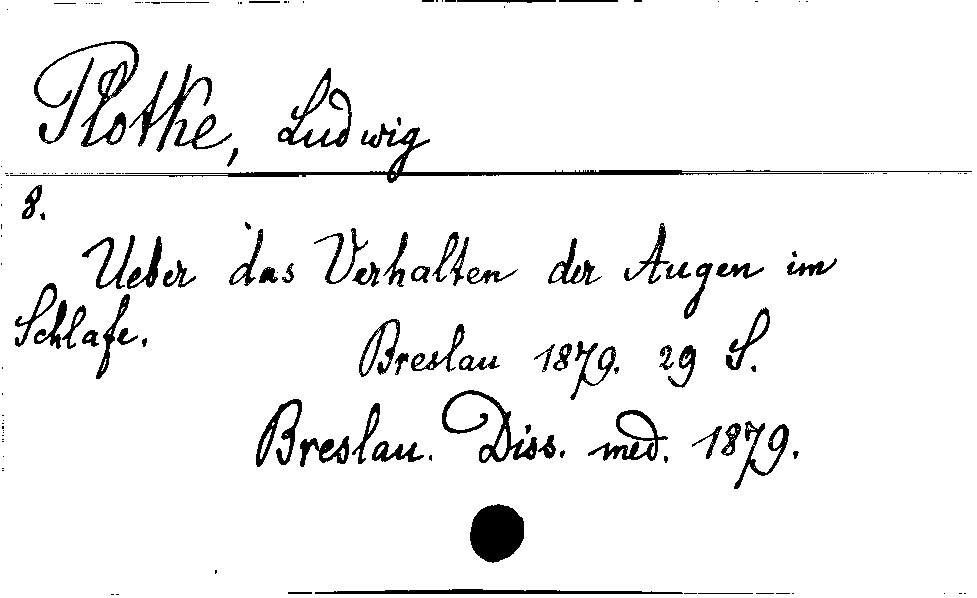 Plotke, Ludwig
8.
Ueber das Verhalten der Augen im
Schlafe.
Breslau 1879. 29 S.
Breslau. Diss. med. 1879.